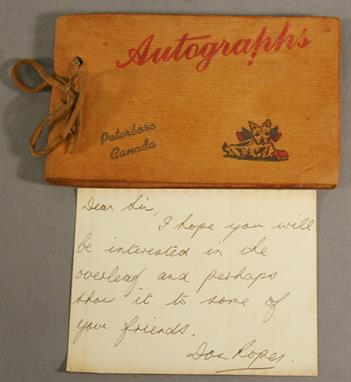 Autographs
Peterboro
Canada
Dear Sir,
I hope you will
be interested in the
overleaf and perhaps
show it to some of
your friends.
Don Roper.